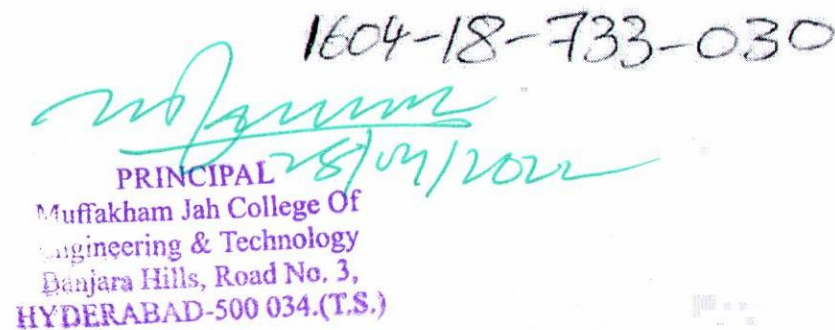 1604-18-733-030
28/04/2022
PRINCIPAL
Muffakham Jah College Of
Engineering & Technology
Banjara Hills, Road No. 3,
HYDERABAD-500 034.(T.S.)